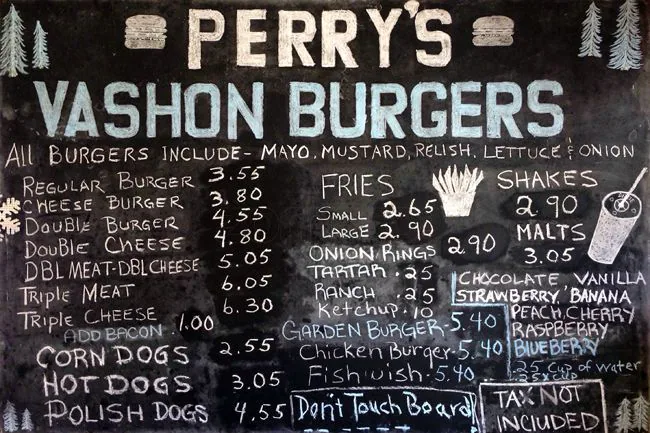 PERRY'S
VASHON BURGERS
ALL BURGERS INCLUDE- MAYO, MUSTARD, RELISH, LETTUCE & ONION
REGULAR BURGER 3.55
CHEESE BURGER 3.80
DOUBLE BURGER 4.55
DOUBLE CHEESE 4.80
DBL MEAT-DBL CHEESE 5.05
TRIPLE MEAT 6.05
TRIPLE CHEESE 6.30
ADD BACON .1.00
CORN DOGS 2.55
HOT DOGS 3.05
POLISH DOGS 4.55
FRIES
SMALL 2.65
LARGE 2.90
ONION RINGS 2.90
TARTAR .25
RANCH .25
Ketchup .10
GARDEN BURGER-5.40
Chicken Burger-5.40
Fishwish.5.40
Don't Touch Board
SHAKES
2.90
MALTS
3.05
CHOCOLATE VANILLA
STRAWBERRY, BANANA
PEACH, CHERRY
RASPBERRY
BLUEBERRY
.25 Cup of water
TAX NOT
INCLUDED